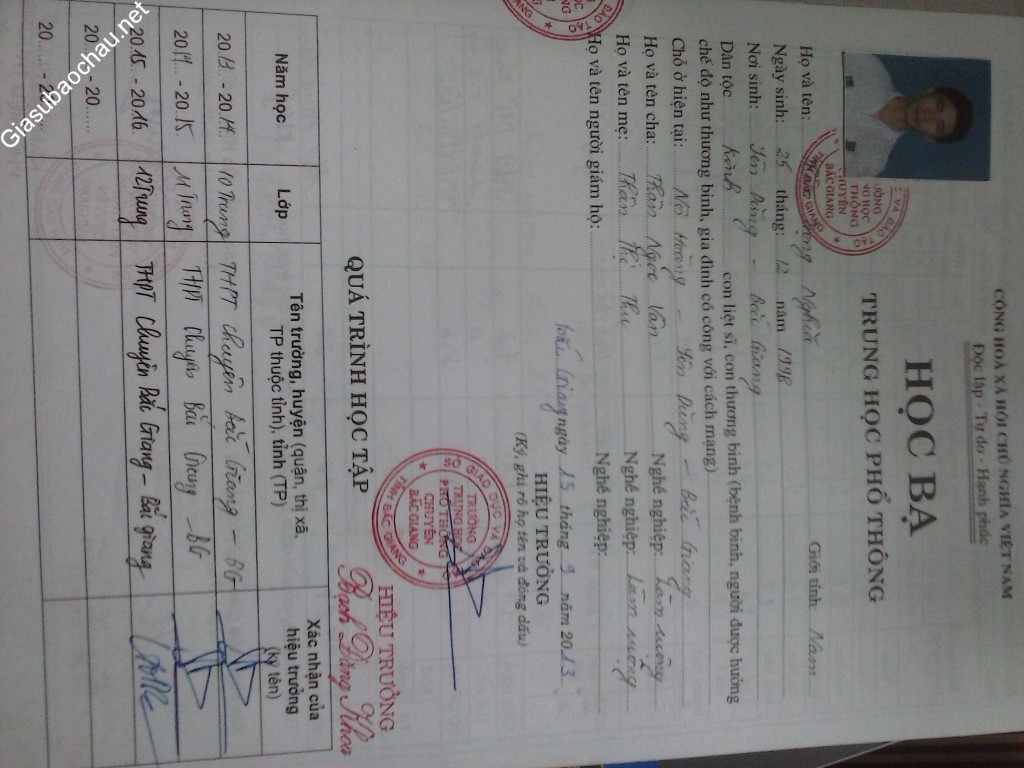 CỘNG HOÀ XÃ HỘI CHỦ NGHĨA VIỆT NAM
Độc lập - Tự do - Hạnh phúc
HỌC BẠ
TRUNG HỌC PHỔ THÔNG
Họ và tên: Nghĩa Giới tính: Nam
Ngày sinh: 25 tháng: 12 năm 1998
Nơi sinh: Yên Dũng - Bắc Giang
Dân tộc Kinh con liệt sĩ, con thương binh (bệnh binh, người được hưởng
chế độ như thương binh, gia đình có công với cách mạng)
Chỗ ở hiện tại: Hoàng - Yên Dũng - Bắc Giang
Họ và tên cha: Thân Ngọc Văn Nghề nghiệp: Làm ruộng
Họ và tên mẹ: Thân Thị Thu Nghề nghiệp: Làm ruộng
Họ và tên người giám hộ: Nghề nghiệp:
Bắc Giang ngày 15 tháng 9 năm 2013
HIỆU TRƯỞNG
(Ký, ghi rõ họ tên và đóng dấu)
SỞ GIÁO DỤC VÀ
TRƯỜNG
TRUNG HỌC
PHỔ THÔNG
CHUYÊN
BẮC GIANG
TỈNH BẮC GIANG
HIỆU TRƯỞNG
Bạch Đăng Khoa
QUÁ TRÌNH HỌC TẬP
Năm học Lớp Tên trường, huyện (quận, thị xã, TP thuộc tỉnh), tỉnh (TP) Xác nhận của hiệu trưởng (ký tên)
2013 - 2014 10 Trung THPT Chuyên Bắc Giang - BG
2014 - 2015 11 Trung THPT Chuyên Bắc Giang - BG
2015 - 2016 12 Trung THPT Chuyên Bắc Giang - Bắc Giang
20...... - 20......
20...... - 20......
Giasubaochau.net